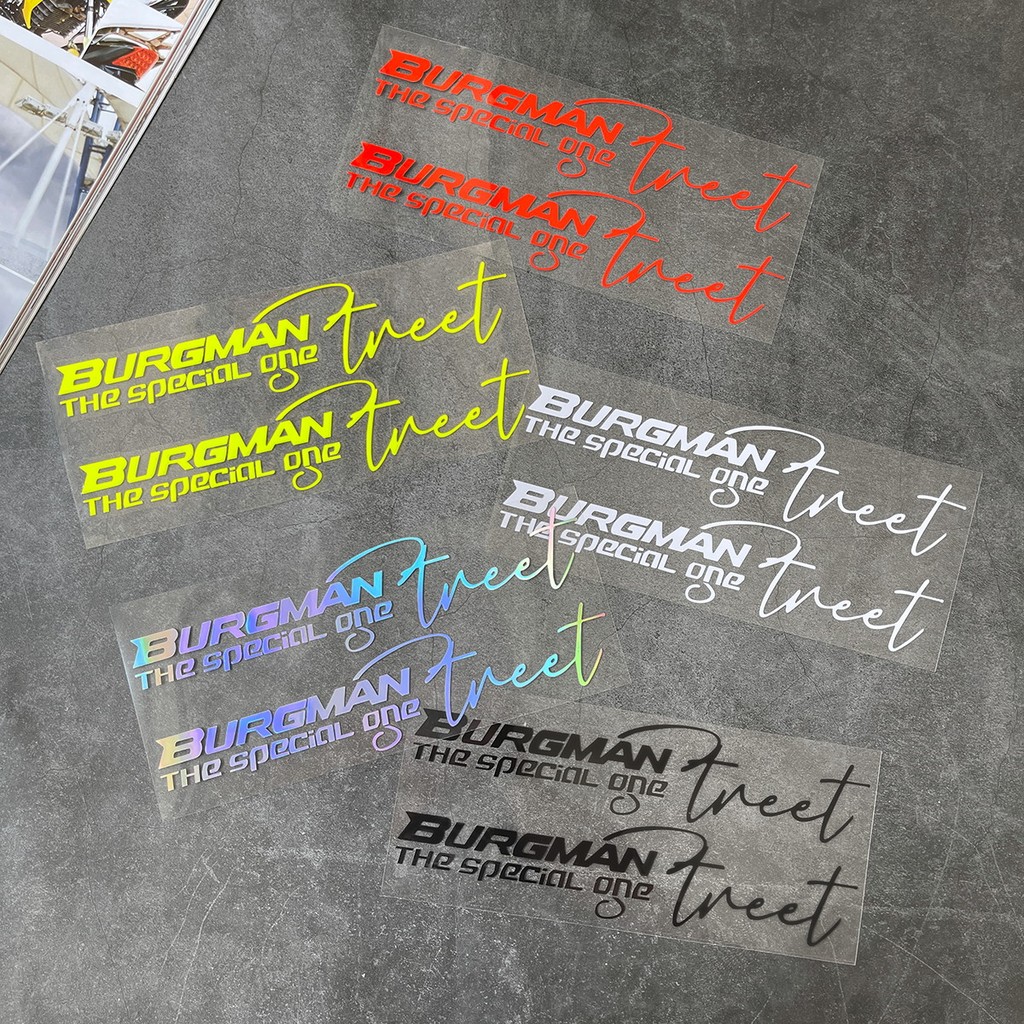 BURGMAN Street
THe special one
BURGMAN Street
THe special one
BURGMAN Street
THe special one
BURGMAN Street
THe special one
BURGMAN Street
THe special one
BURGMAN Street
THe special one
BURGMAN Street
THe special one
BURGMAN Street
THe special one
BURGMAN Street
THe special one
BURGMAN Street
THe special one